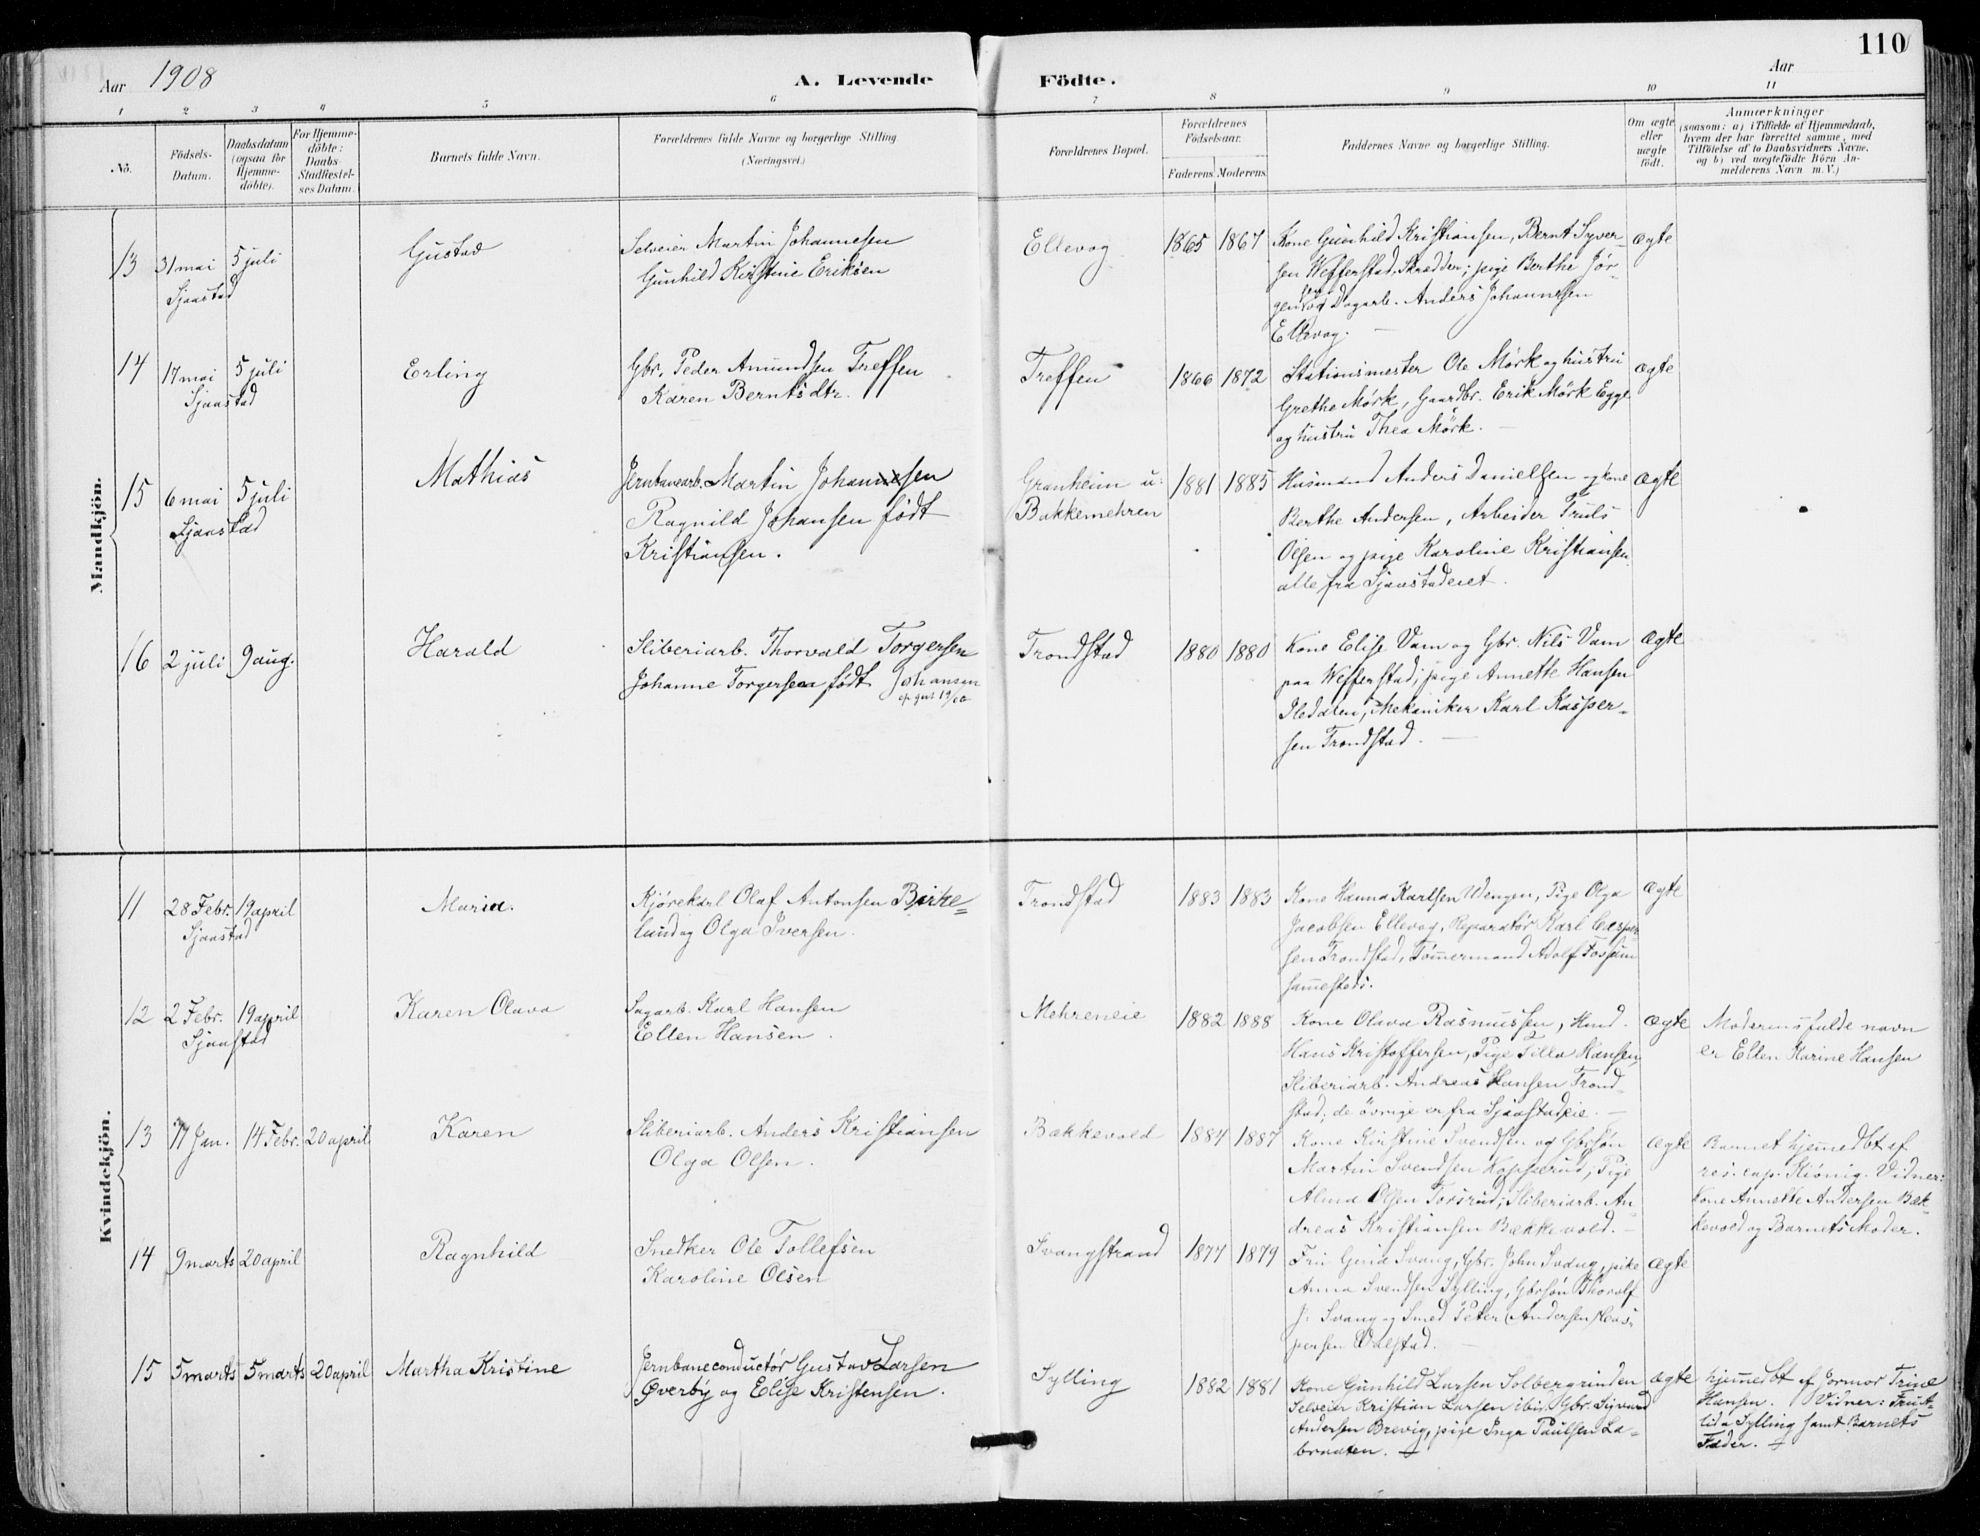 110
Aar 1908
A. Levende Födte.
Aar
1 2 3 4 5 6 7 8 9 10 11
No.
Födsels-
Datum.
Daabsdatum
(ogsaa for
Hjemme-
döbte).
For Hjemme-
döbte:
Daabs-
Stadfæstel-
ses Datum.
Barnets fulde Navn.
Forældrenes fulde Navne og borgerlige Stilling
(Næringsvei.)
Forældrenes Bopæl.
Forældrenes
Födselsaar.
Faderens. Moderens.
Faddernes Navne og borgerlige Stilling.
Om ægte
eller
uægte
født.
Anmærkninger
(saasom: a) i Tilfælde af Hjemmedaab,
hvem der har forrettet samme, med
Tilföielse af to Daabsvidners Navne,
og b) ved uægtefödte Börn An-
melderens Navn m. V.)
Mandkjön.
13 31 mai 5 juli
Sjaastad
Gustav
Selveier Martin Johannesen
Gunhild Kirstine Eriksen
Ellevog
1865 1867
Kone Gunhild Kristiansen, Bernt Syver-
sen Wefferstad, Skrædder; pige Berthe Jör-
gensen og Dagarb. Anders Johannesen
Ellevog.
Ægte
14 17 mai 5 juli
Sjaastad
Erling
Gbr. Peder Amundsen Treffen
Karen Berntsdtr.
Treffen
1866 1872
Stationsmester Ole Mörk og hustru
Grethe Mörk, Gaardbr. Erik Mörk Egge
og hustru Thea Mörk.
Ægte
15 6 mai 5 juli
Sjaastad
Mathias
Jernbanearb. Martin Johannesen
Ragnild Johansen født
Kristiansen.
Granheim u:
Bakkemehren
1881 1885
Husmand Anders Danielsen og kone
Berthe Andersen, Arbeider Truls
Olsen og pige Karoline Kristiansen
alle fra Sjaastadeiet.
Ægte
16 2 juli 9 aug.
Harald
Sliberiarb. Thorvald Torgersen
Johanne Torgersen født Johansen
Trondstad
1880 1880
Kone Elise Vam og Gbr. Nils Vam
paa Wefferstad; pige Annette Hansen
Hedalen, Mekaniker Karl Kasper-
sen Trondstad.
Ægte
Kvindekjön.
11 28 Febr. 19 april
Sjaastad
Maria.
Kjörekarl Olaf Antonsen Birke-
lund og Olga Iversen.
Trondstad
1883 1883
Kone Hanna Karlsen Wengen, Pige Olga
Jacobsen Ellevog, Reparatör Karl Casper-
sen Trondstad, Tömmermand Adolf Fossum
sammesteds.
Ægte
12 2 Febr. 19 april
Sjaastad
Karen Olava
Sagarb. Karl Hansen
Ellen Hansen
Mehreneie
1882 1888
Kone Olava Rasmussen, Husmd.
Hans Kristoffersen, Pige Tilla Hansen,
Sliberiarb. Andreas Hansen Trond-
stad; de övrige er fra Sjaastadeie.
Ægte
Moderens fulde navn
er Ellen Karine Hansen
13 17 Jan. 14 Febr. 20 april
Karen
Sliberiarb. Anders Kristiansen
Olga Olsen.
Bækkevold
1884 1887
Kone Kirstine Svendsen og Gbrsön
Martin Svendsen Kopperud; Pige
Alma Olsen Torsrud; Sliberiarb. An-
dreas Kristiansen Bækkevold.
Ægte
Barnet hjemmedbt af
res. cap. Kiönig. Vidner:
Kone Annette Andersen Bæk-
kevold og Barnets Moder.
14 9 marts 20 april
Ragnhild
Snedker Ole Tollefsen
Karoline Olsen
Svangstrand
1877 1879
Fru Gina Svang, Gbr. John Svang, pike
Anna Svendsen Sylling, Gbrsön Thorolf
J. Svang og Smed Peter Andersen Kas-
persen Odalstad.
Ægte
15 5 marts 5 marts 20 april
Martha Kristine
Jernbaneconductör Gustav Larsen
Øverby og Elise Kristensen.
Sylling
1882 1881
Kone Gunhild Larsen Solbergrinden
Selveier Kristian Larsen ibid. Gbr. Sigvard
Andersen Brevig, pige Inga Paulsen La-
braaten.
Ægte
hjemmedbt af Jormor Trine
Hansen. Vidner:
Sylling samt Barnets
Fader.